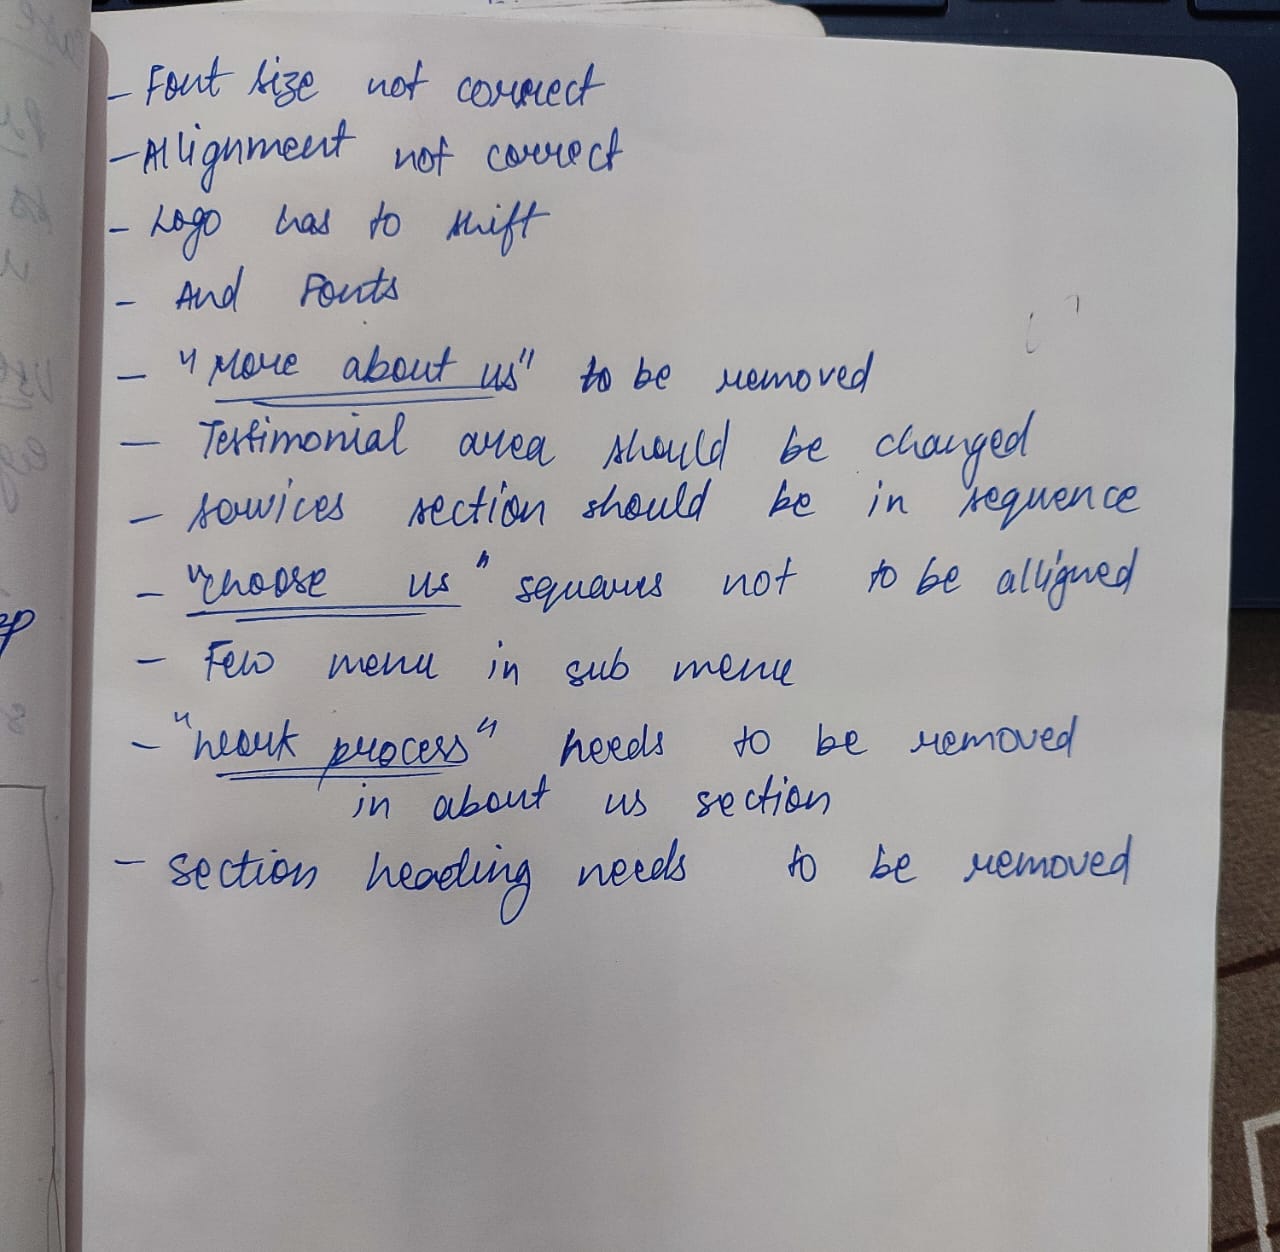 - Font size not correct
- Allignment not correct
- Logo has to shift
- And Fonts
- "More about us" to be removed
- Testimonial area should be changed
- services section should be in sequence
- "choose us" squares not to be alligned
- Few menu in sub menu
- "work process" needs to be removed
in about us section
- section heading needs to be removed